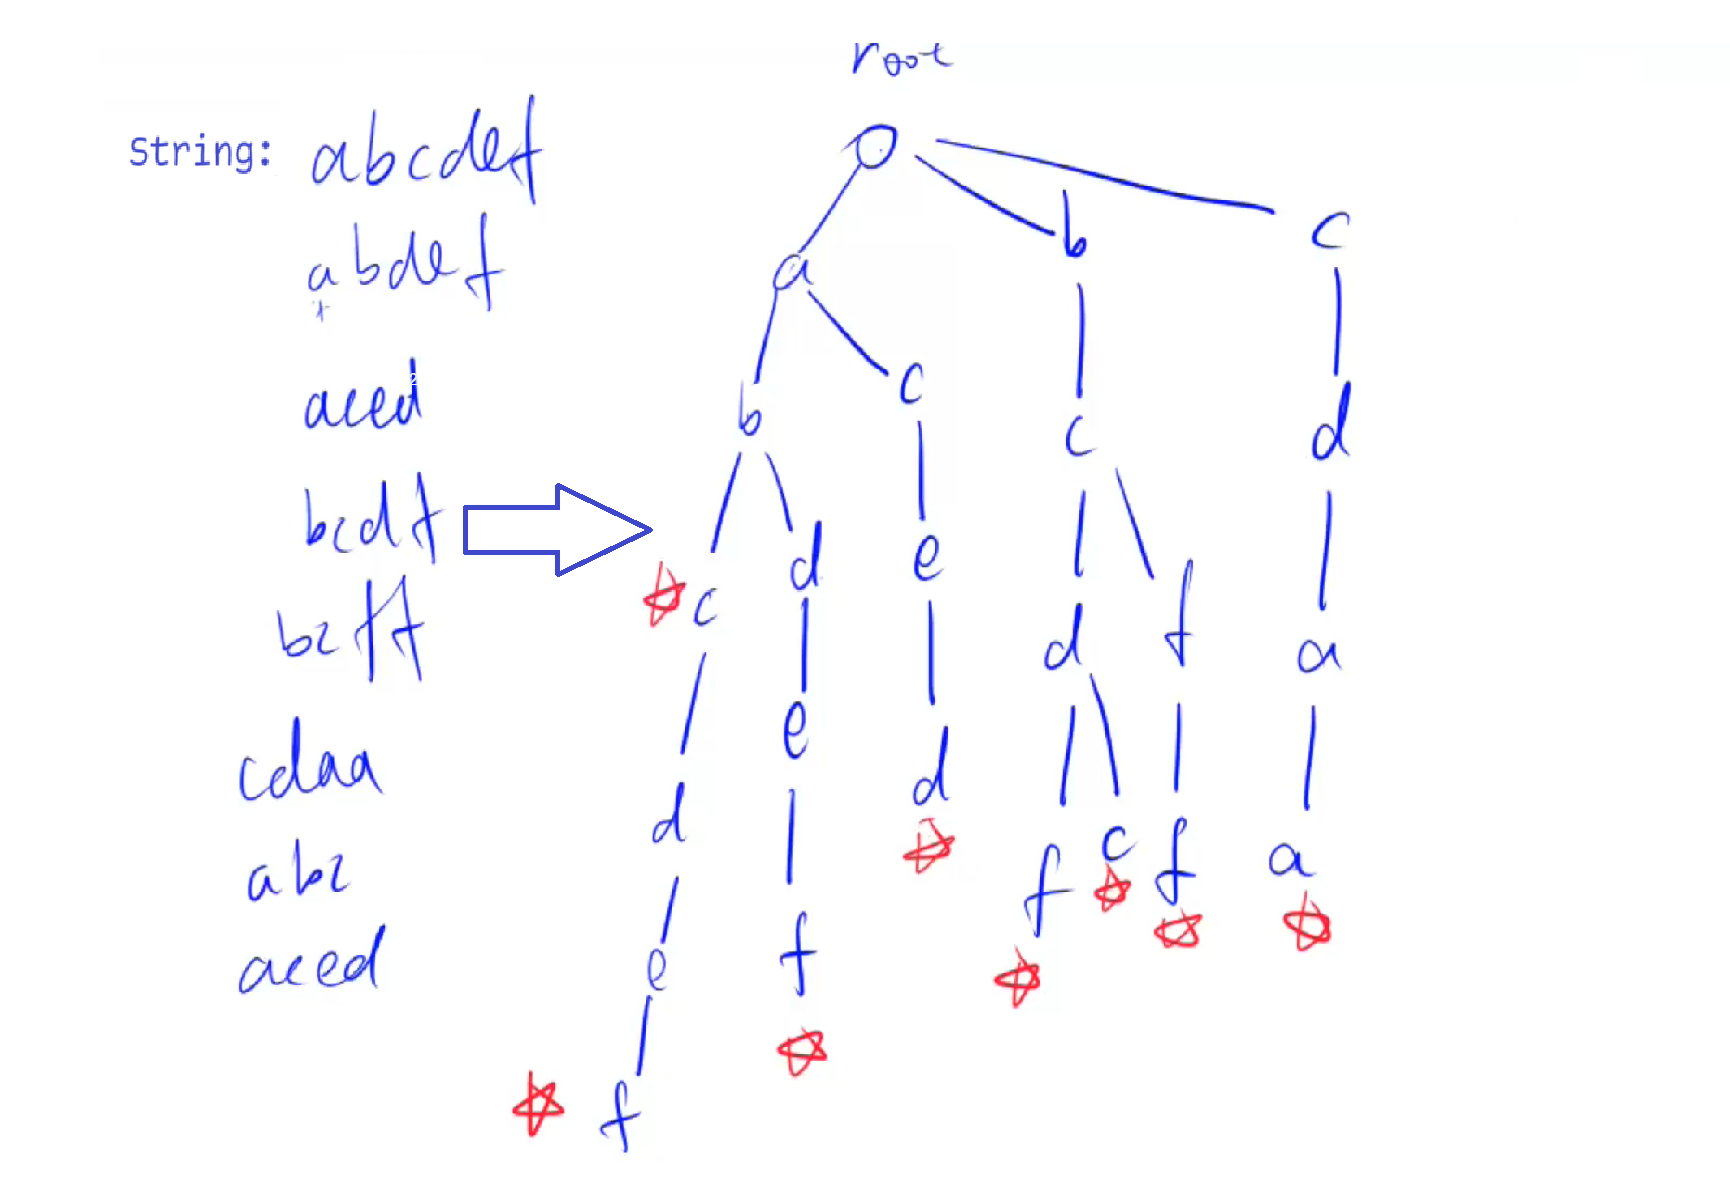 root
String: abcdef
abdef
aced
bcdf
bcff
cdaa
abc
aced
b c
a
b c
c d
c d e d
d f a
e
d d f c f a
e f
f